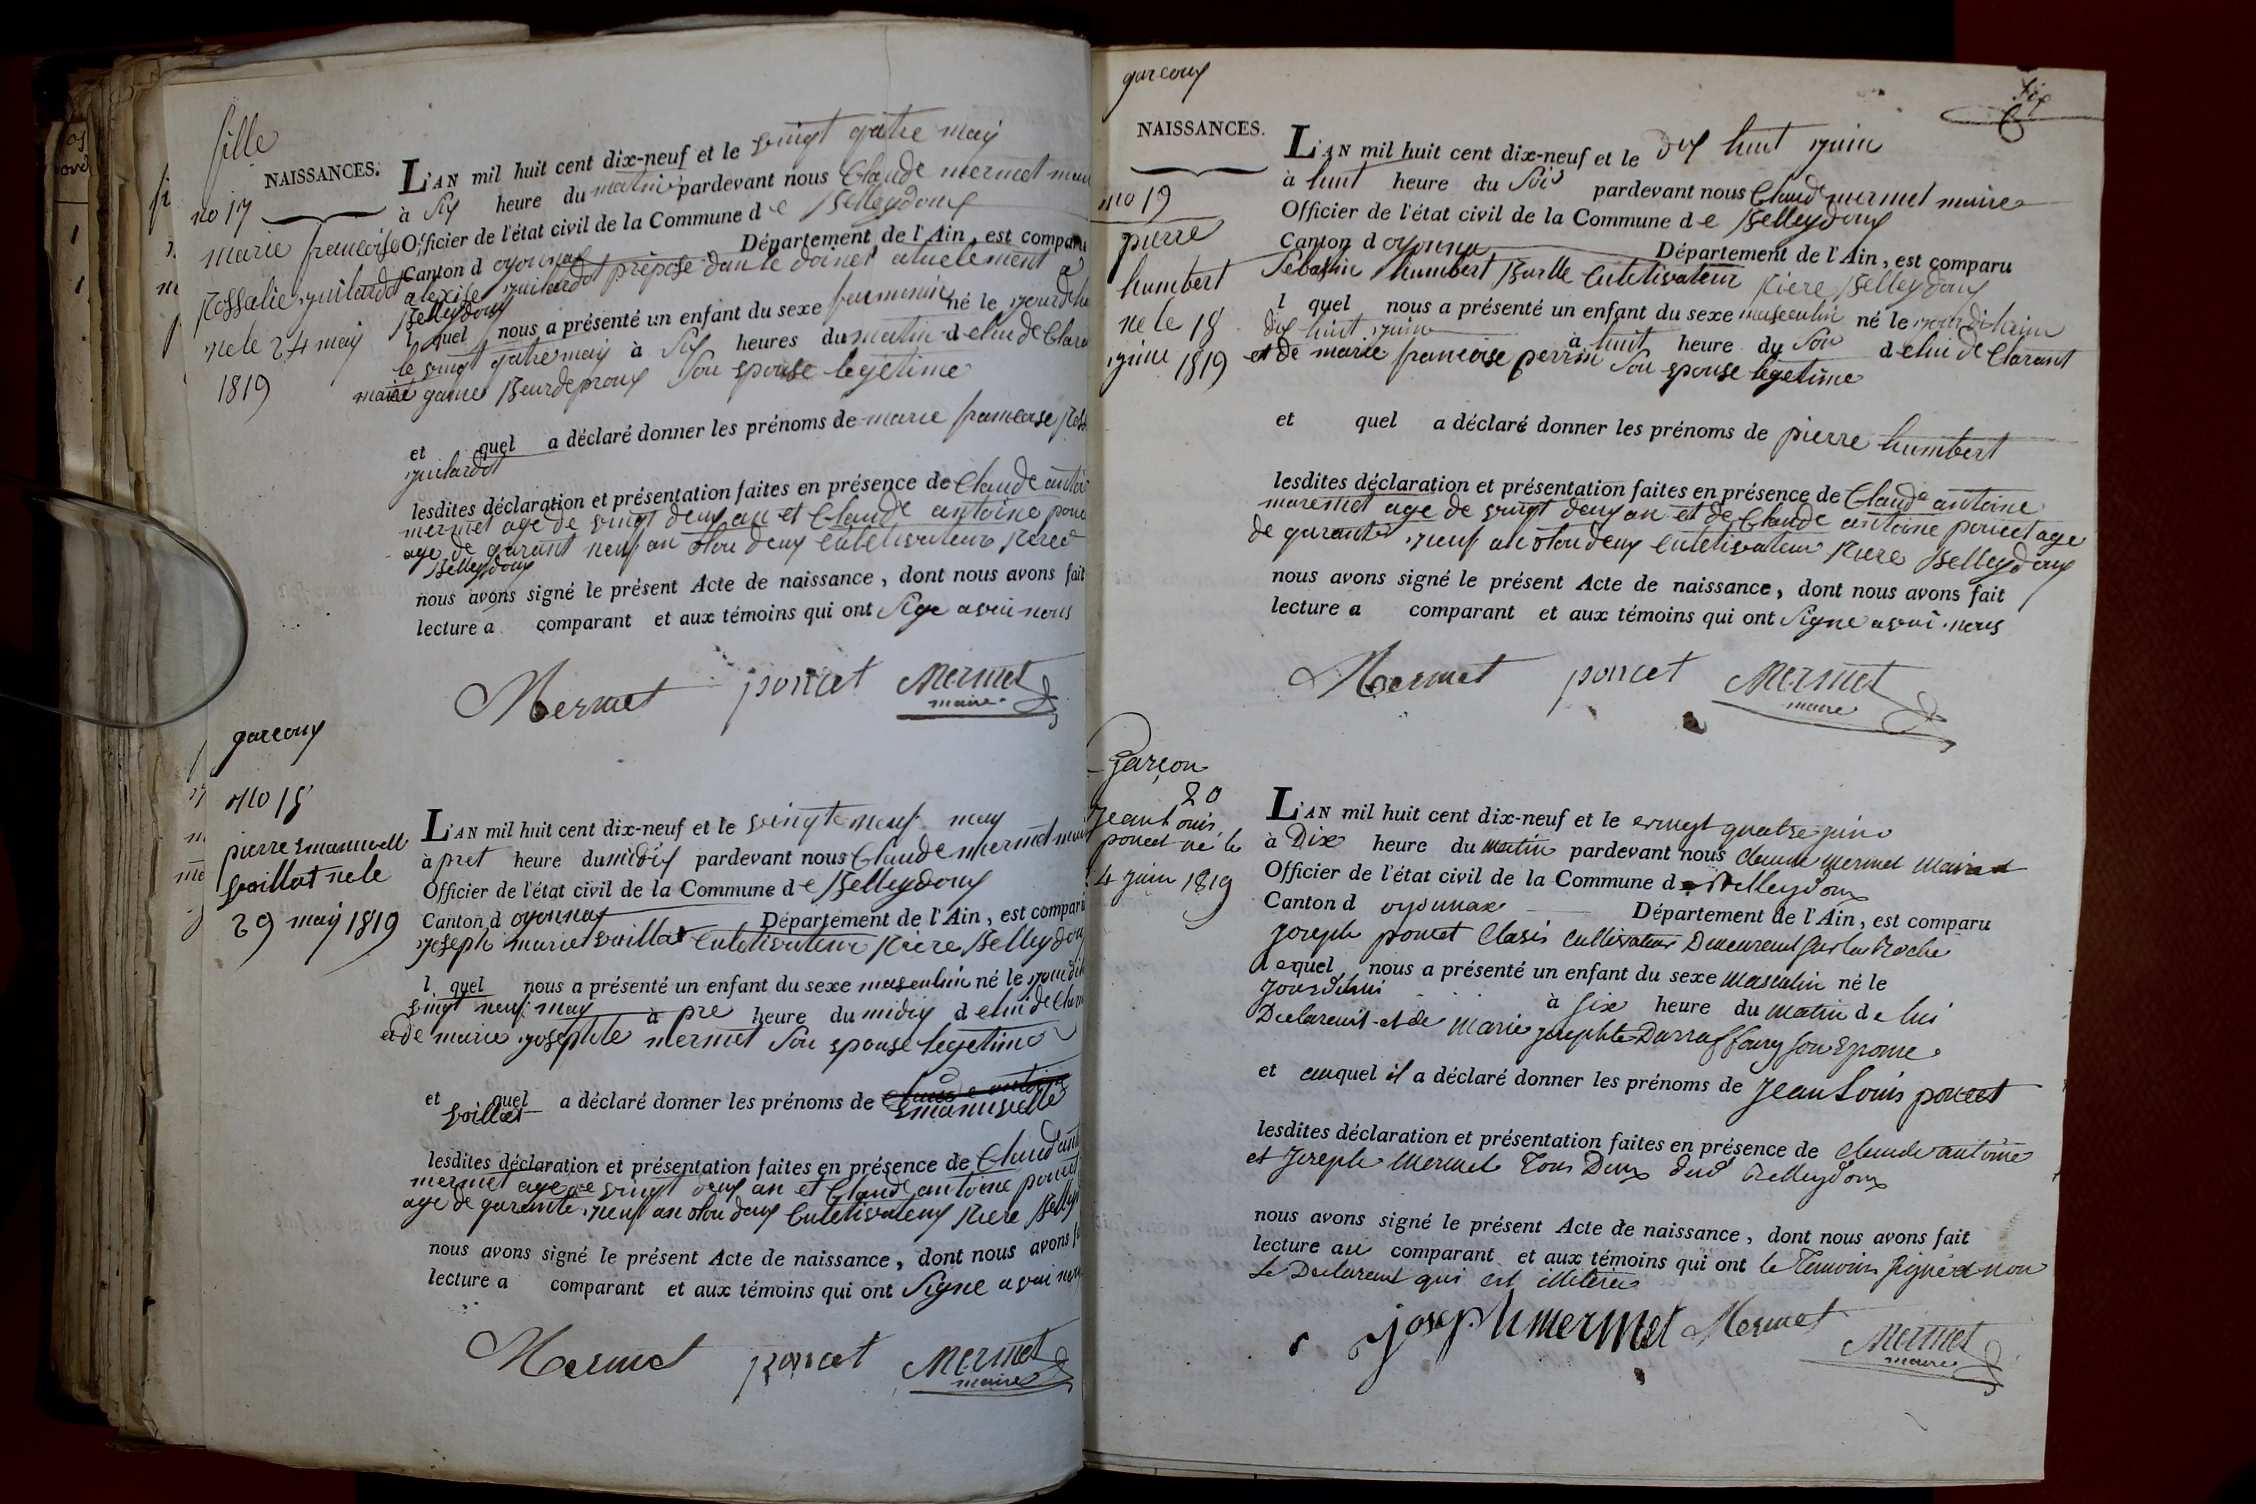 fille
NAISSANCES.
no 17
marie francoise
Rossalie juilardot
ne le 24 may
1819
L'AN mil huit cent dix-neuf et le vingt qatre may
à Six heure du matin pardevant nous Claude mermet
Officier de l'état civil de la Commune de Belleydoux
Canton d oyonnax Département de l'Ain, est comparu
alexise juilardot prepose dan le doines atuelement a
Belleydoux
l quel nous a présenté un enfant du sexe né le
le vingt qatre may à Six heures du matin d elui de
marie Son spouse legetime
et quel a déclaré donner les prénoms de marie francoise
juilardot
lesdites déclaration et présentation faites en présence de Claude
mermet age de vingt deux an et Claude antoine
age de garant neuf an cultivateur Riere
Belleydoux
nous avons signé le présent Acte de naissance, dont nous avons fait
lecture a comparant et aux témoins qui ont Sige avai nous
Mermet poncet Mermet
maire
garcoux
no 18
pierre Emanuell
Vaillat ne le
29 may 1819
L'AN mil huit cent dix-neuf et le vingt neuf may
à pret heure du midix pardevant nous Claude mermet
Officier de l'état civil de la Commune de Belleydoux
Canton d oyonnax Département de l'Ain, est comparu
joseph marie Vaillat Cultivateur Riere Belleydoux
l quel nous a présenté un enfant du sexe masculin né le
vingt neuf may à pre heure du midix d elui de
et de marie josephte mermet Sou spouse legetime
et quel a déclaré donner les prénoms de
Vaillat Emanuelle
lesdites déclaration et présentation faites en présence de
mermet age de vingt deux an et Claude antoine poncet
age de garante neuf an Riere
nous avons signé le présent Acte de naissance, dont nous avons
lecture a comparant et aux témoins qui ont Signe avai
Mermet poncet Mermet
maire
garcoux
Six
NAISSANCES.
no 19
pierre
humbert
ne le 18
juin 1819
L'AN mil huit cent dix-neuf et le dix huit juin
à huit heure du Soir pardevant nous Claude mermet maire
Officier de l'état civil de la Commune de Belleydoux
Canton d oyonnax Département de l'Ain, est comparu
humbert Cultivateur Riere Belleydoux
l quel nous a présenté un enfant du sexe masculin né le
dix huit juin à huit heure du Soir d elui de Clarant
et de marie francoise perrin Sou spouse legetime
et quel a déclaré donner les prénoms de pierre humbert
lesdites déclaration et présentation faites en présence de Claude antoine
maremet age de vingt deux an et de Claude antoine poncet age
de garante neuf an Riere Belleydoux
nous avons signé le présent Acte de naissance, dont nous avons fait
lecture a comparant et aux témoins qui ont Signe avai nous
Mermet poncet Mermet
maire
Garçon
20
Jean Louis
poncet né le
4 juin 1819
L'AN mil huit cent dix-neuf et le vingt quatre juin
à Dix heure du matin pardevant nous Claude Mermet Maire
Officier de l'état civil de la Commune de Belleydoux
Canton d oyonnax Département de l'Ain, est comparu
Joseph poncet cultivateur Demeurent Sur la Roche
l equel nous a présenté un enfant du sexe Masculin né le
Jourdhui à Six heure du Matin de lui
Declarent et de Marie josephte Darraffourg son Epouse
et auquel il a déclaré donner les prénoms de Jean Louis poncet
lesdites déclaration et présentation faites en présence de Claude antoine
et Joseph Mermet Tous Deux dud Belleydoux
nous avons signé le présent Acte de naissance, dont nous avons fait
lecture au comparant et aux témoins qui ont le Temoins signé et non
Le Declarent qui est illiteré
joseph mermet Mermet Mermet
maire